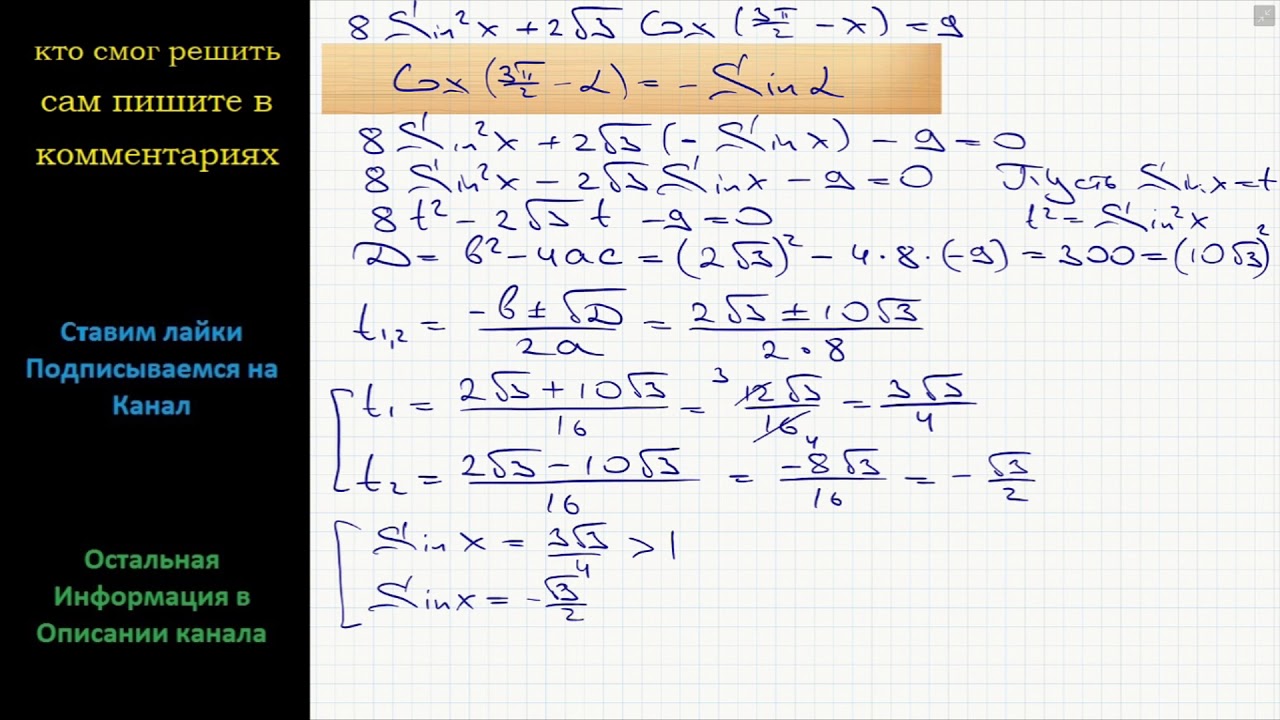 кто смог решить
сам пишите в
комментариях
Ставим лайки
Подписываемся на
Канал
Остальная
Информация в
Описании канала
8 Sin²x + 2√3 Cos (3π/2 − x) = 9
Cos (3π/2 − α) = − Sin α
8 Sin²x + 2√3 (− Sin x) − 9 = 0
8 Sin²x − 2√3 Sin x − 9 = 0 Пусть Sin x = t
8 t² − 2√3 t − 9 = 0 t² = Sin²x
D = b² − 4ac = (2√3)² − 4 · 8 · (−9) = 300 = (10√3)²
t₁,₂ = (−b ± √D)/(2a) = (2√3 ± 10√3)/(2 · 8)
t₁ = (2√3 + 10√3)/16 = 3 12√3/16 4 = 3√3/4
t₂ = (2√3 − 10√3)/16 = −8√3/16 = − √3/2
Sin x = 3√3/4 > 1
Sin x = − √3/2